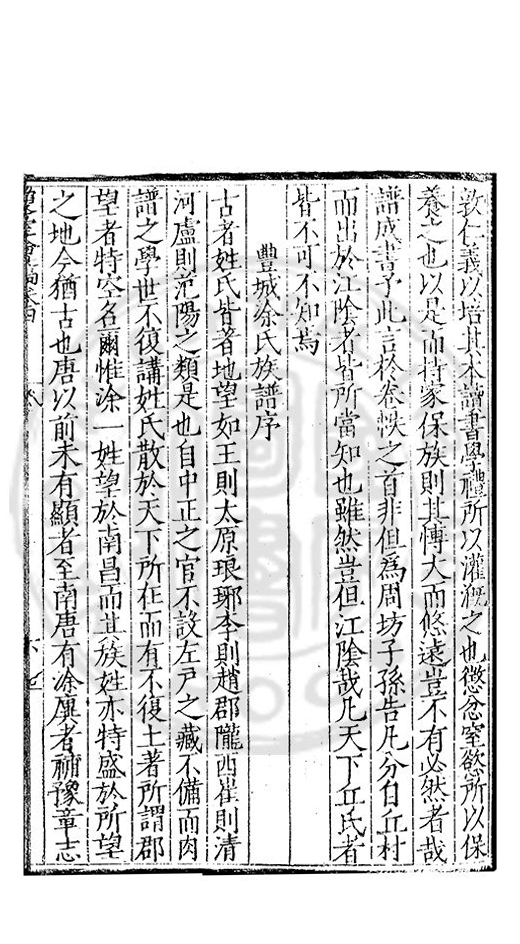 敦仁義以培其本讀書學禮所以灌漑之也懲忿窒慾所以保
養之也以是而持家保族則其慱大而悠遠豈不有必然者哉
譜成書予此言於卷帙之首非但爲周坊子孫告凡分自丘村
而出於江陰者皆所當知也雖然豈但江陰哉凡天下丘氏者
皆不可不知焉
豐城涂氏族譜序
古者姓氏皆著地望如王則太原琅琊李則趙郡隴西崔則清
河盧則范陽之類是也自中正之官不設左戶之藏不備而肉
譜之學世不復講姓氏散於天下所在而有不復土著所謂郡
望者特空名爾惟涂一姓望於南昌而其族姓亦特盛於所望
之地今猶古也唐以前未有顯者至南唐有涂廙者補豫章志